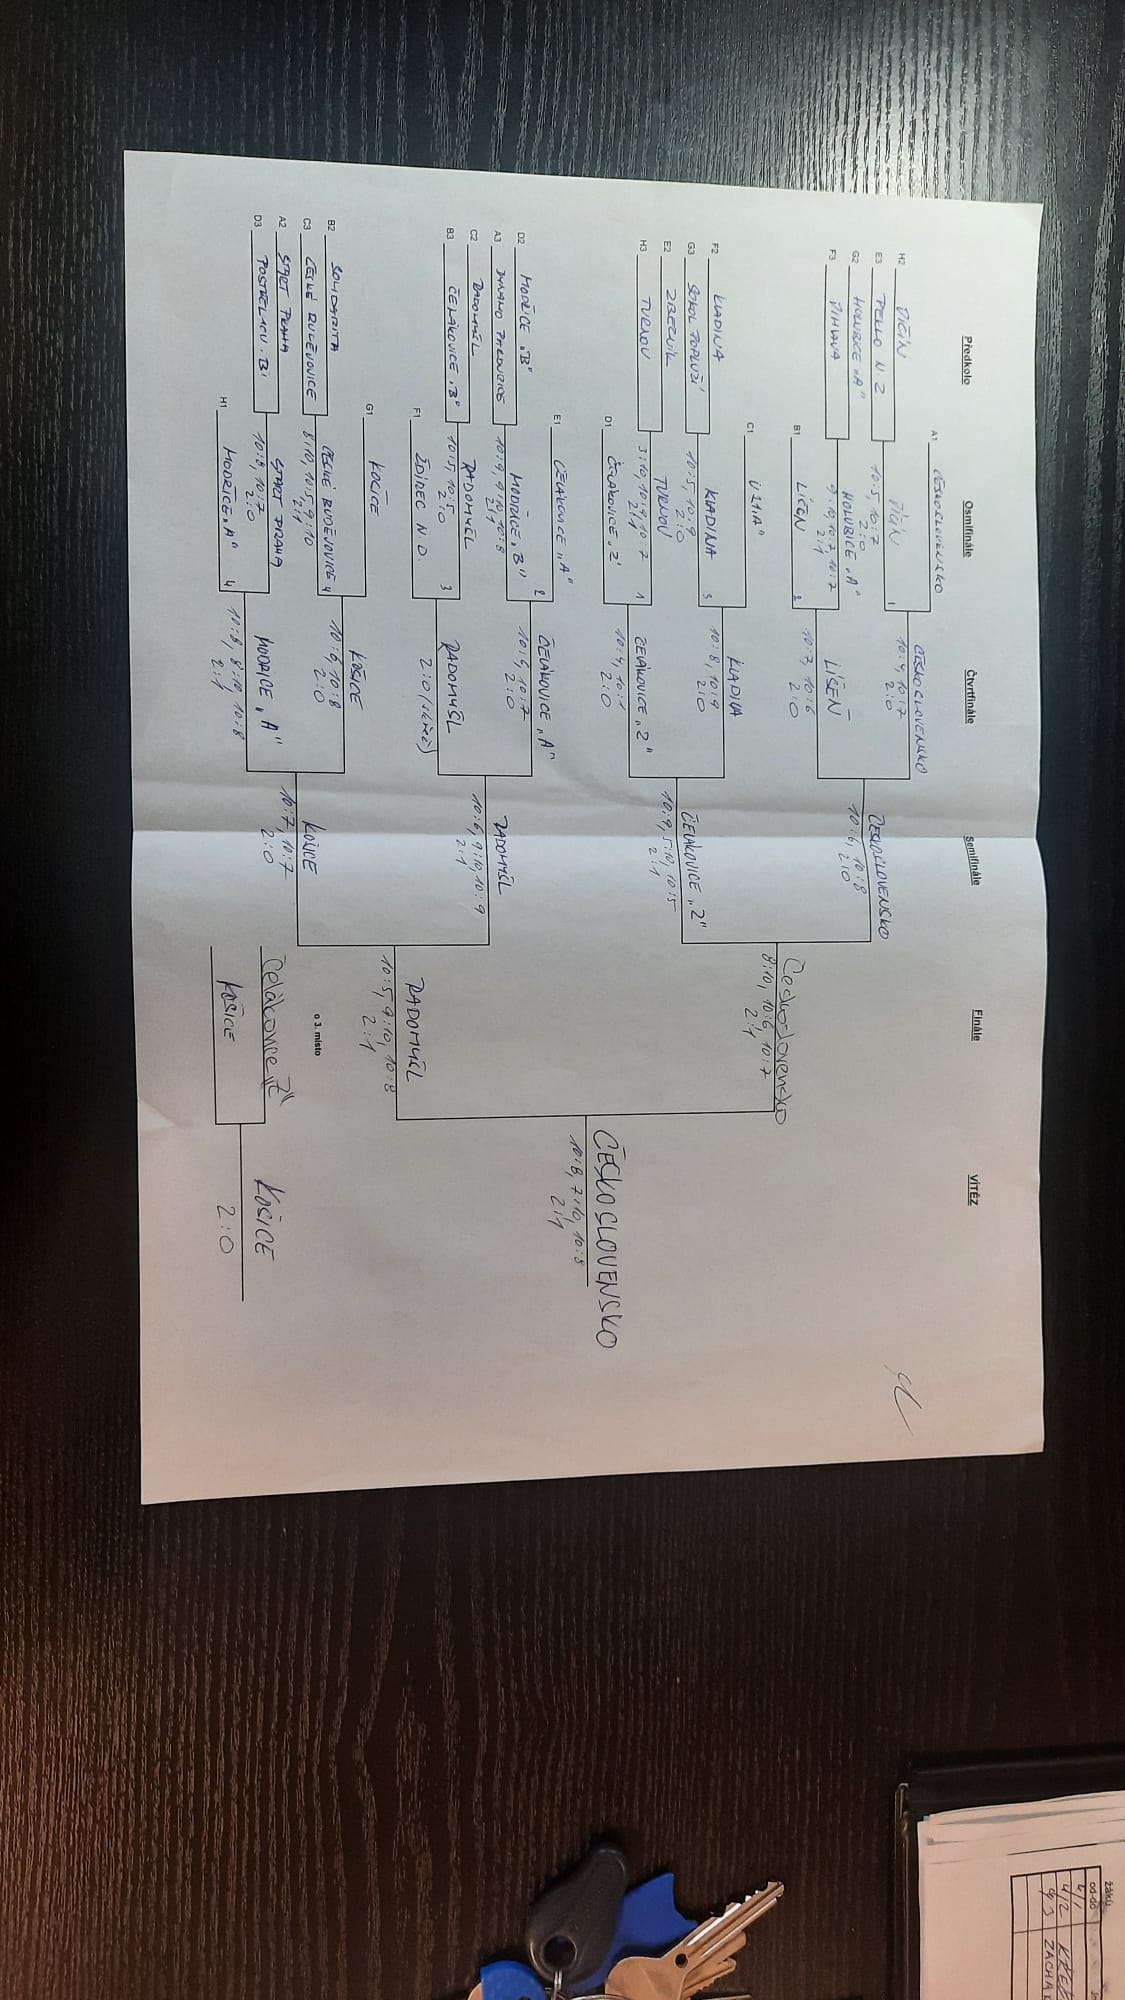 Předkolo
Osmifinále
Čtvrtfinále
Semifinále
Finále
VÍTĚZ
A1 ČESKOSLOVENSKO
H2 JIČÍN
E3 PELLO N Z
JIČÍN
10:5, 10:7
2:0
1
ČESKOSLOVENSKO
10:4, 10:7
2:0
G2 HOLUBICE „A"
F3 JIHLAVA
HOLUBICE „A"
9:10, 10:7, 10:7
2:1
B1 LÍŠEŇ
2
LÍŠEŇ
10:7, 10:6
2:0
ČESKOSLOVENSKO
10:6, 10:8
2:0
C1
F2 KLADINA
G3 SOKOL POPLUŽÍ
KLADINA
10:5, 10:9
2:0
3
KLADINA
10:8, 10:9
2:0
E2 ZBEČNÍK
H3 TURNOV
TURNOV
10:9, 10:7
2:1
D1 ČELÁKOVICE „Z"
1
ČELÁKOVICE „Z"
2:0
ČELÁKOVICE „Z"
10:9, 5:10, 10:5
2:1
Československo
8:10, 10:6, 10:7
2:1
E1 ČELÁKOVICE „A"
D2 MODŘICE „B"
A3 DYNAMO PARDUBICE
MODŘICE „B"
10:9, 9:10, 10:8
2:1
2
ČELÁKOVICE „A"
10:7
2:0
C2 RADOMYŠL
B3 ČELÁKOVICE „B"
RADOMYŠL
10:5, 10:5
2:0
F1 ŽDÍREC N.D.
3
RADOMYŠL
2:0
RADOMYŠL
10:6, 9:10, 10:9
2:1
G1 KOŠICE
B2 SOLIDARITA
C3 ČESKÉ BUDĚJOVICE
ČESKÉ BUDĚJOVICE
8:10, 10:5, 9:10
2:1
4
KOŠICE
10:6, 10:8
2:0
A2 START PRAHA
D3 POSTŘELMOV „B"
START PRAHA
10:8, 10:7
2:0
H1 MODŘICE „A"
4
MODŘICE „A"
10:8, 8:10, 10:8
2:1
KOŠICE
10:7, 10:7
2:0
RADOMYŠL
10:5, 9:10, 10:8
2:1
ČESKOSLOVENSKO
10:8, 7:10, 10:8
2:1
o 3. místo
Čelákovice „Z"
KOŠICE
KOŠICE
2:0
žáků
od-do
4/2